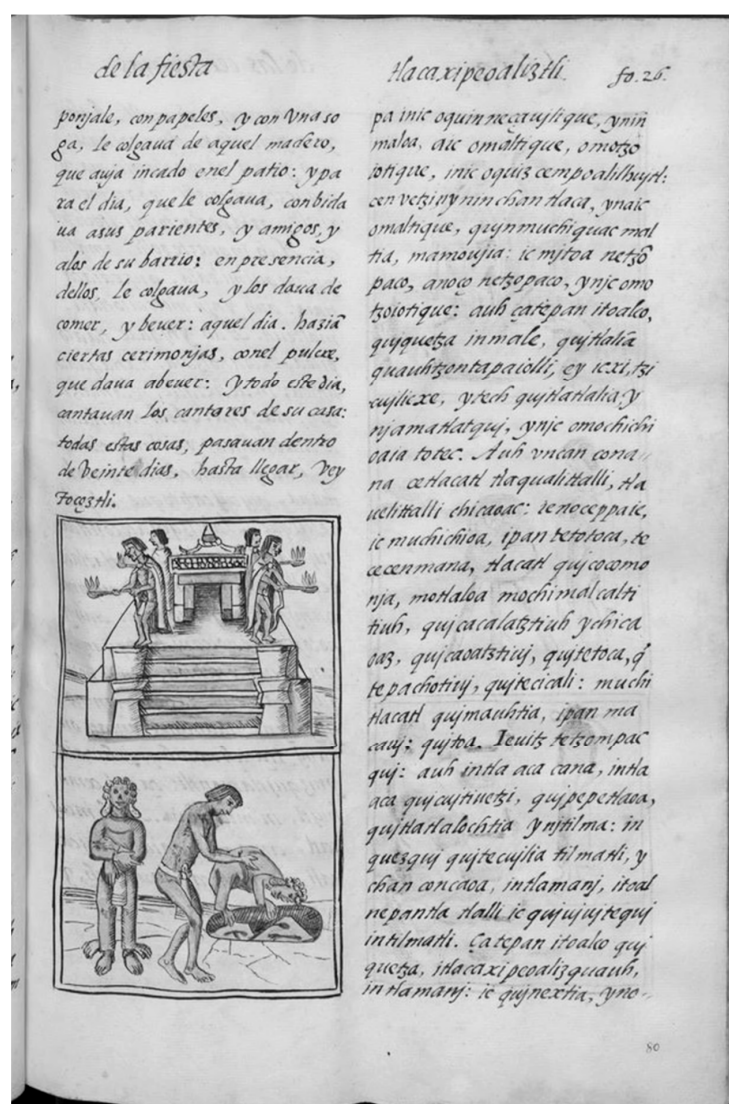 de la fiesta
tlacaxipeoaliztli.
fo. 26.
ponjale, con papeles, y con vna so
ga, le colgaua de aquel madero,
que auja incado enel patio: y pa
ra el dia, que le colgaua, conbida
ua asus parientes, y amigos, y
alos de su barrio: en presencia,
dellos, le colgaua, y los daua de
comer, y beuer: aquel dia. haziã
ciertas cerimonjas, conel pulcre,
que daua abeuer: y todo este dia,
cantauan los cantares de su casa:
todas estas cosas, pasauan dentro
de veinte dias, hasta llegar, vey
toçoztli.
pa inic oquinneçaujlique, ynin
maloa, aic omaltique, omotzo
iotique, inic oquiz cempoalilhuytl:
cen vetzi yn jn chan tlaca, ynaic
omaltique, qujnmuchiquac mal
tia, mamoujia: ic mjtoa netzõ
paco, anoço netzopaco, ynjc omo
tzoiotique: auh çatepan itoalco,
qujquetza in male, qujtlalia
quauhtzontapaiolli, ey icxi, tzi
cujlicxe, ytech qujtlatlalia y
njamatlatquj, ynje omochichi
oaia totec. Auh vncan cona-
na ce tlacatl tlaqualittalli, tla
uelittalli chicaoac: ie no ceppa ie,
ic muchichioa, ipan tetotoca, te
cecenmana, tlacatl qujcocomo
nja, motlaloa mochimalcalti
tiuh, qujcacalatztiuh ychica
oaz, qujcaoatztiuj, qujtetoca, q̃
tepachotiuj, qujtecicali: muchi
tlacatl qujmauhtia, ipan ma
cauj: qujtoa. Ie uitz tetzompac
quj: auh intla aca cana, intla
aca qujcujtiuetzi, qujpepetlaoa,
qujtlatlalochtia yn jtilma: in
quezquj qujtecujlia tilmatli, y
chan concaoa, in tlamanj, itoal
nepantla tlalli ic qujujujtequj
in tilmatli. Çatepan itoalco quj
quetza, itlacaxipeoalizquauh,
in tlamanj: ic qujnextia, yno-
80